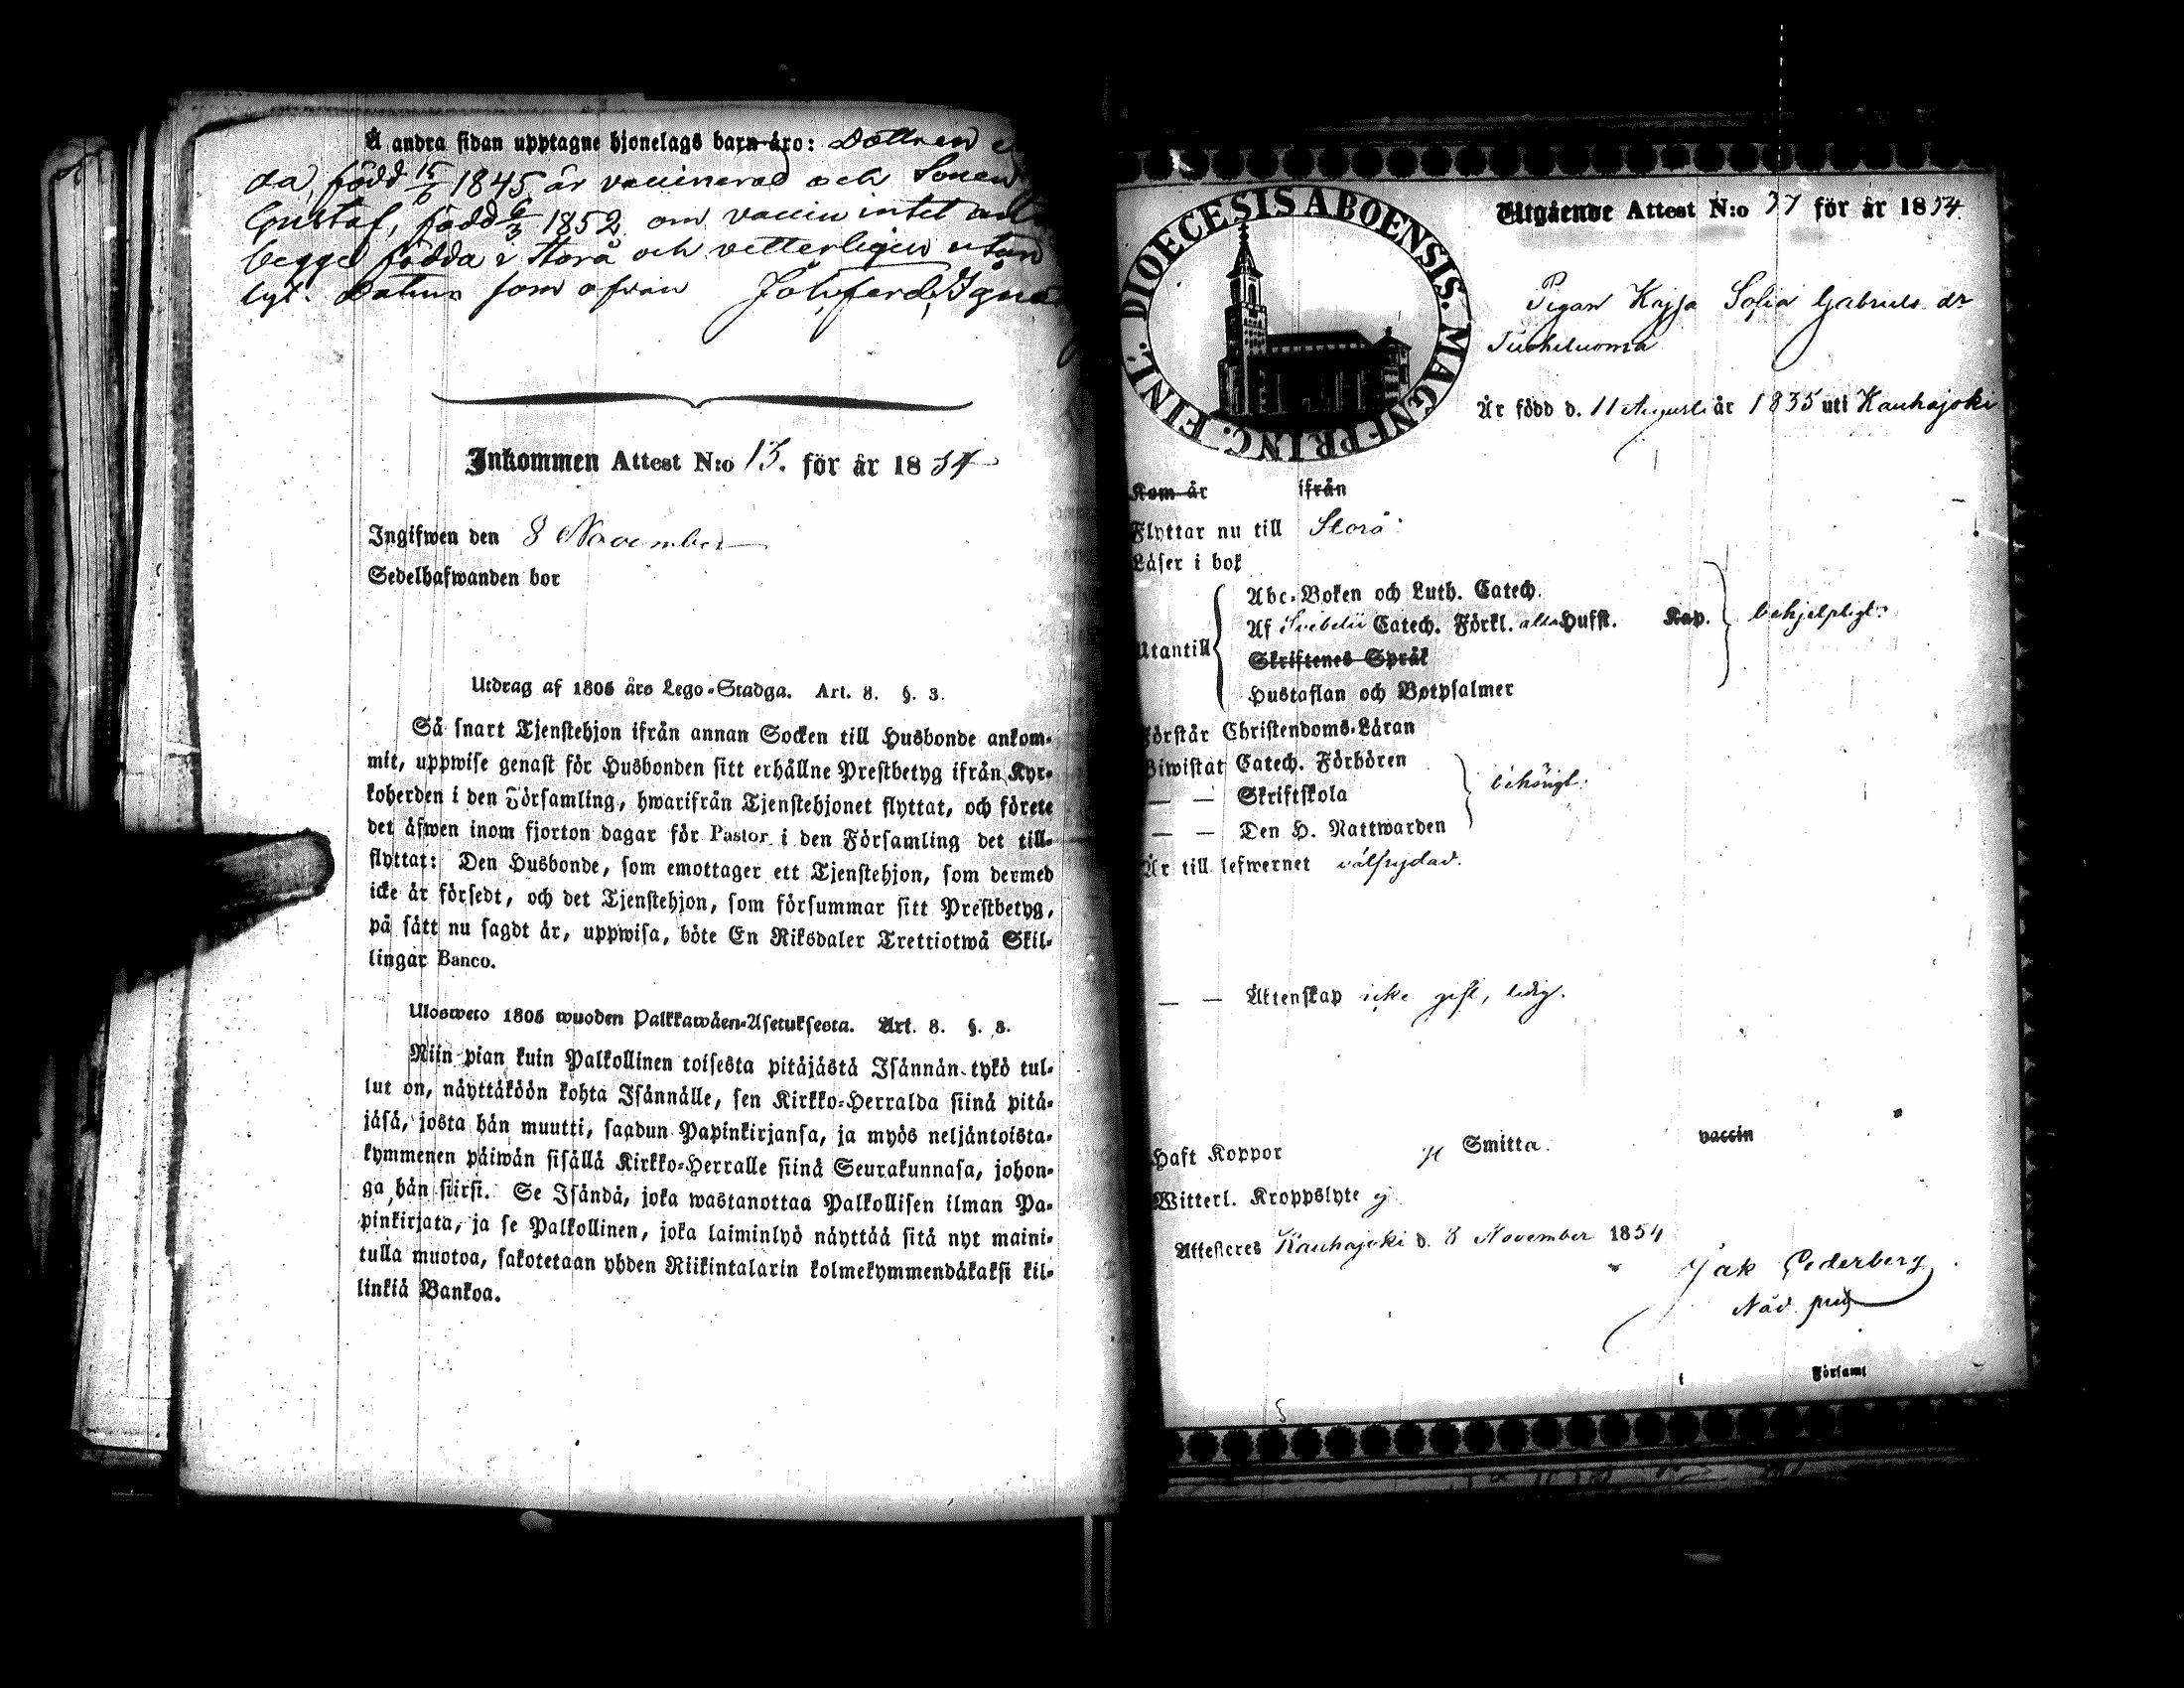 Å andra sidan upptagne hjonelags barn äro: Dottren
da, född 15/6 1845 är vaccinerad och Sonen
Gustaf, född 6/3 1852 om vaccin intet
begge födda i Storå och vetterligen utan
lyt. Datum som ofvan Joh. Ferd.
Inkommen Attest N:o 13. för år 1854
Ingifwen den 8 November
Sedelhafwanden bor
Utdrag af 1805 års Lego-Stadga. Art. 8. §. 3.
Så snart Tjenstehjon ifrån annan Socken till Husbonde ankom-
mit, uppwise genast för Husbonden sitt erhållne Prestbetyg ifrån Kyr-
koherden i den Församling, hwarifrån Tjenstehjonet flyttat, och förete
det äfwen inom fjorton dagar för Pastor i den Församling det till-
flyttat: Den Husbonde, som emottager ett Tjenstehjon, som dermed
icke är försedt, och det Tjenstehjon, som försummar sitt Prestbetyg,
på sätt nu sagdt är, uppwisa, böte En Riksdaler Trettiotwå Skil-
lingar Banco.
Ulosweto 1805 wuoden Palkkawäen-Asetuksesta. Art. 8. §. 3.
Niin pian kuin Palkollinen toisesta pitäjästä Isännän tykö tul-
lut on, näyttäköön kohta Isännälle, sen Kirkko-Herralda siinä pitä-
jäsä, josta hän muutti, saadun Papinkirjansa, ja myös neljäntoista-
kymmenen päiwän sisällä Kirkko-Herralle siinä Seurakunnasa, johon-
ga hän siirsi. Se Isändä, joka wastanottaa Palkollisen ilman Pa-
pinkirjata, ja se Palkollinen, joka laiminlyö näyttää sitä nyt maini-
tulla muotoa, sakotetaan yhden Riikintalarin kolmekymmendäkaksi kil-
linkiä Bankoa.
DIOECESIS ABOENSIS. MAGNI PRINC. FINL.
Utgående Attest N:o 37 för år 1854.
Pigan Kajsa Sofia Gabriels dr
Tuokiluoma
Är född d. 11 Augusti år 1835 uti Kauhajoki
Kom år ifrån
Flyttar nu till Storå
Läser i bok
Abc-Boken och Luth. Catech.
Af Svebelii Catech. Förkl. alla Hufst. Kap. behjelpligt.
Utantill
Skriftenes Språk
Hustaflan och Botpsalmer
Förstår Christendoms-Läran
Biwistat Catech. Förhören
— — Skriftskola behörigt.
— — Den H. Nattwarden
Är till lefwernet välfrejdad.
— — Äktenskap icke gift, ledig.
Haft Koppor Smitta. vaccin
Witterl. Kroppslyte ej
Attesteres Kauhajoki d. 8 November 1854
Jak Cederberg
Nåd. pred
Församl